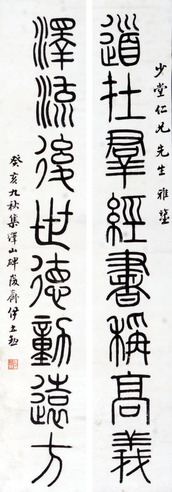 少堂仁兄先生雅鑒
道在群經書稱高義
澤流後世德動遠方
癸亥九秋集嶧山碑峻齋伊立勳